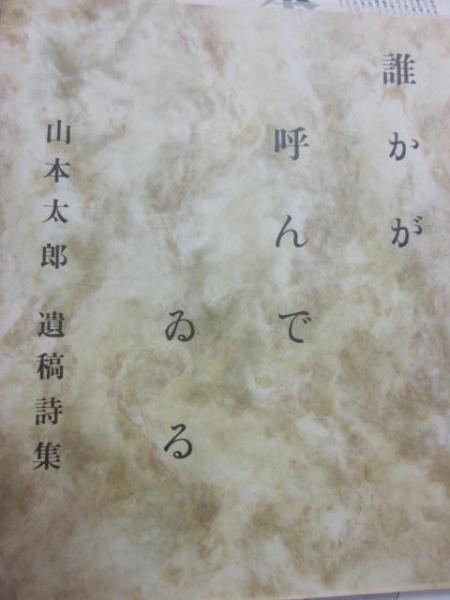 誰かが
呼んで
ゐる
山本太郎 遺稿詩集